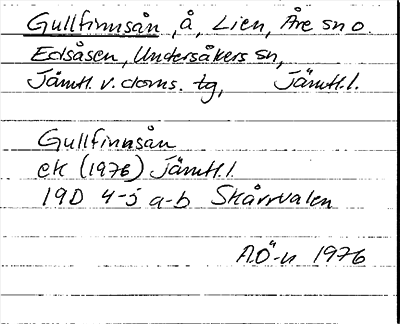 Gullfinnsån, å, Lien, Åre sn o.
Edsåsen, Undersåkers sn,
Jämtl. v. doms. tg, Jämtl. l.
Gullfinnsån
ek (1976) Jämtl. l.
19D 4-5 a-b Skårvalen
A.Ö-n 1976